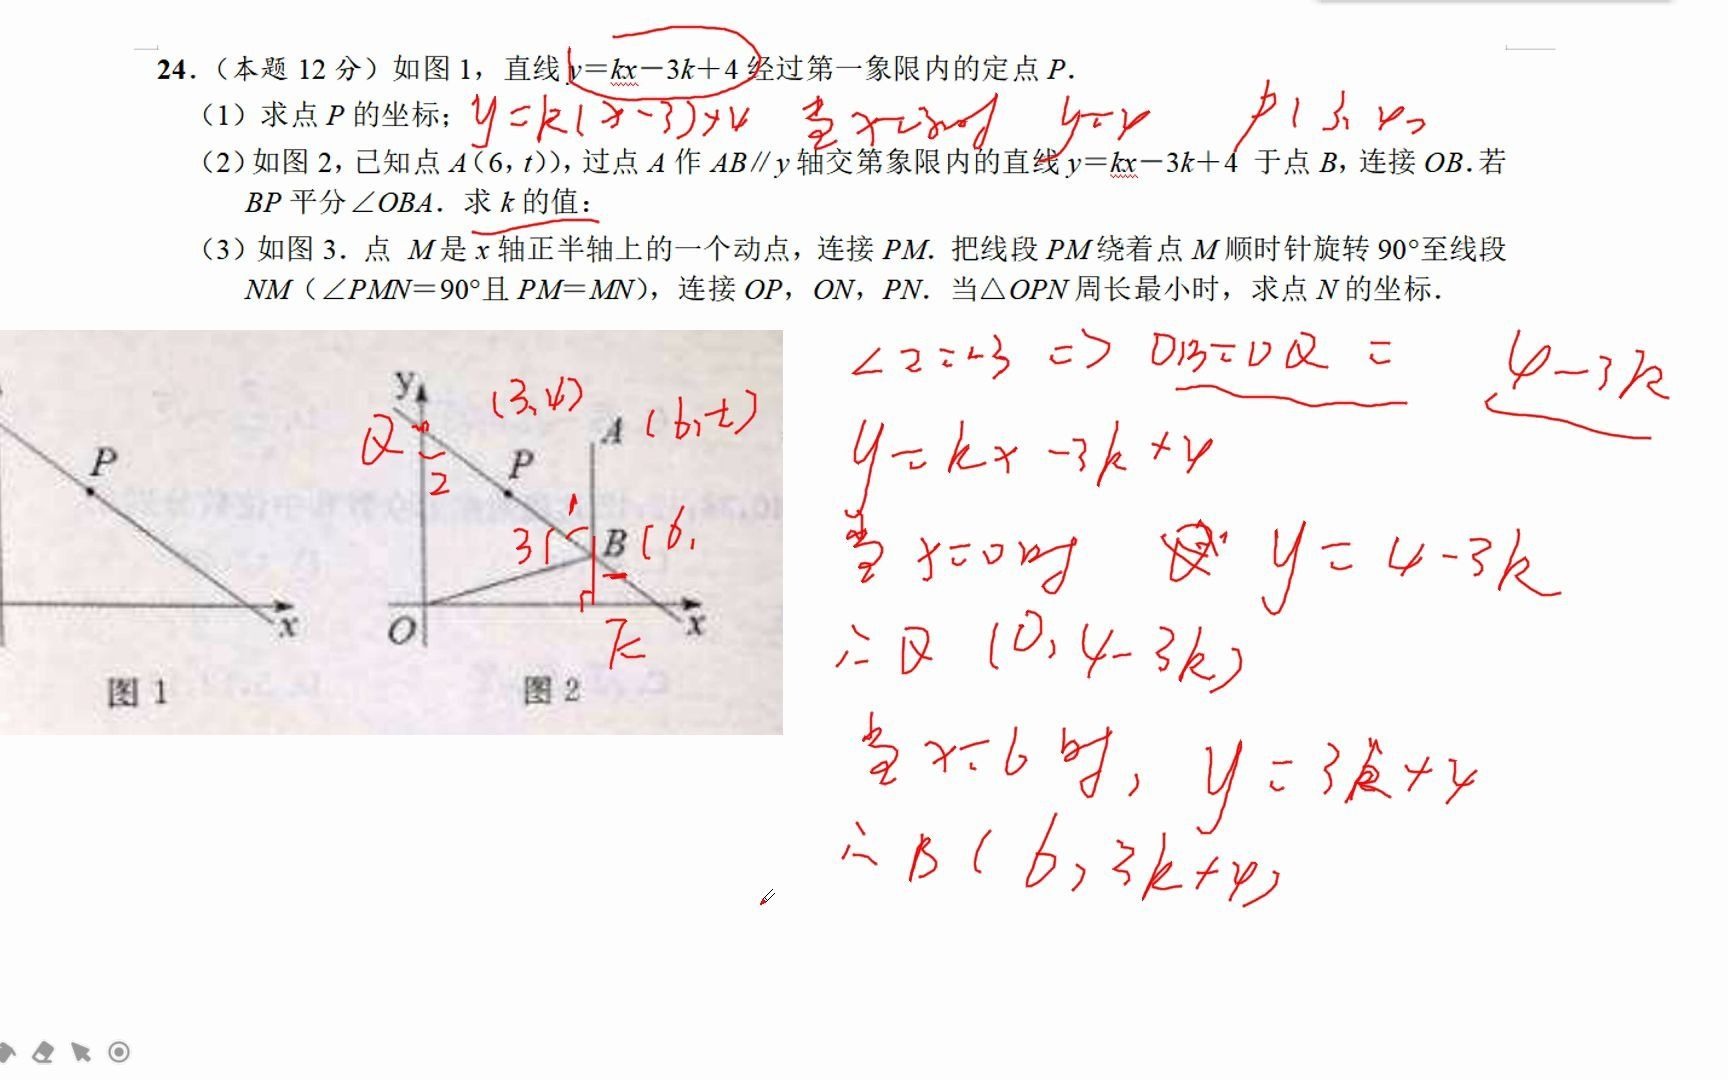 24.（本题 12 分）如图 1，直线 y＝kx－3k＋4 经过第一象限内的定点 P．
（1）求点 P 的坐标；y=k(x-3)+4 当x=3时 y=4 P(3,4)
（2）如图 2，已知点 A（6，t)），过点 A 作 AB∥y 轴交第象限内的直线 y＝kx－3k＋4 于点 B，连接 OB．若
BP 平分∠OBA．求 k 的值：
（3）如图 3．点 M 是 x 轴正半轴上的一个动点，连接 PM．把线段 PM 绕着点 M 顺时针旋转 90°至线段
NM（∠PMN＝90°且 PM＝MN），连接 OP，ON，PN．当△OPN 周长最小时，求点 N 的坐标．
∠2=∠3 => OB=OQ = 4-3k
y=kx-3k+4
当x=0时 y=4-3k
∴Q (0,4-3k)
当x=6时, y=3k+4
∴B(6,3k+4)
P
x
图 1
y
(3,4)
A (6,t)
Q
2
P
1
3
B (6,
O
E
x
图 2